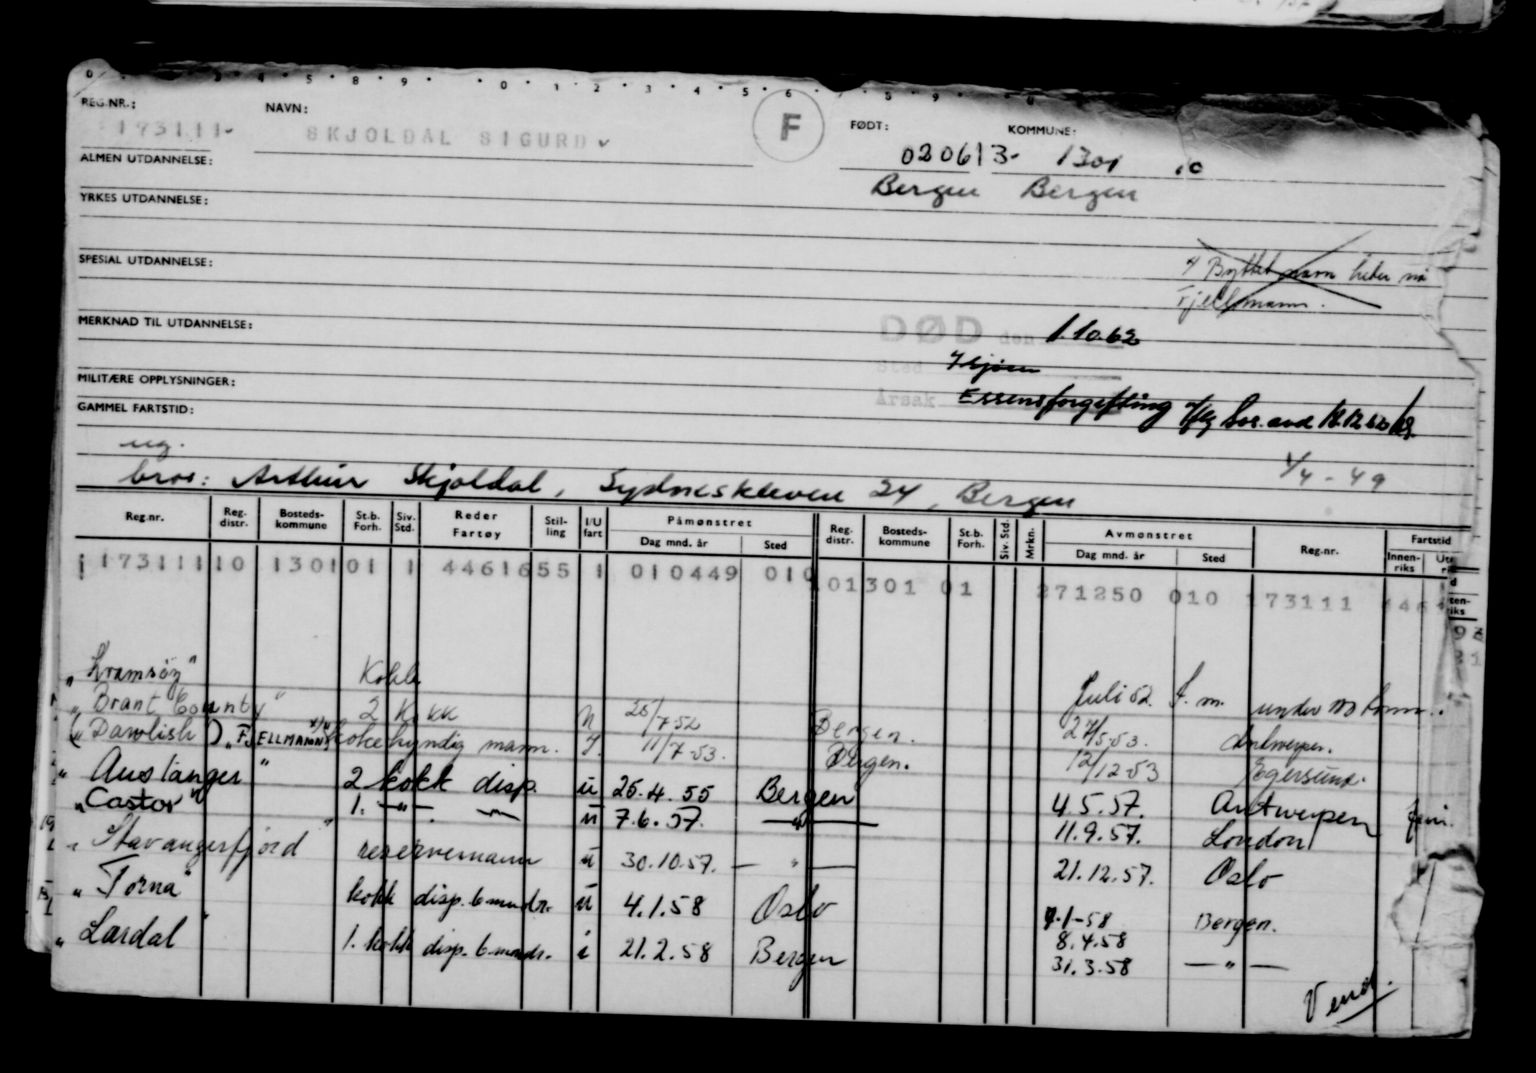 0 3 4 5 8 9 0 1 2 3 4 5 6 7 8 9 0
REG.NR.: NAVN: F FØDT: KOMMUNE:
173111 SKJOLDAL SIGURD 020613 1301
ALMEN UTDANNELSE: Bergen Bergen
YRKES UTDANNELSE:
SPESIAL UTDANNELSE: Byttet navn heter nå
Fjellmann.
MERKNAD TIL UTDANNELSE: DØD den 1.10.62
Sted
MILITÆRE OPPLYSNINGER: Årsak Essensforgiftning
GAMMEL FARTSTID:
ug. 1/4-49
bror: Arthur Skjoldal, Sydneskleven 24, Bergen
Reg.nr. Reg. distr. Bosteds-kommune St.b. Forh. Siv. Std. Reder Fartøy Stil-ling I/U fart Påmønstret Dag mnd. år Sted Reg. distr. Bosteds-kommune St.b. Forh. Siv. Std. Mrkn. Avmønstret Dag mnd. år Sted Reg.nr. Fartstid Innen-riks
173111 10 1301 01 1 4461 655 1 010449 010 10 1301 01 271250 010 173111
"Kramsøy" Kokk Juli 52 f.m.
"Brant County" 2 Kokk U 25/7-52 Bergen. 27/5-53. Antwerpen.
(Dawlish) "FJELLMANN" kokekyndig mann. I 11/7-53. Bergen. 12/12-53 Egersund.
"Austanger" 2 kokk disp. u 25.4.55 Bergen 4.5.57. Antwerpen
"Castor" 1. —"— u 7.6.57. —"— 11.9.57. London
"Stavangerfjord" reservemann u 30.10.57. —"— 21.12.57. Oslo
"Torna" kokk disp. 6 mndr. u 4.1.58 Oslo 9-1-58 Bergen.
8.4.58
"Lardal" 1. kokk disp. 6 mndr. i 21.2.58 Bergen 31.3.58 —"—
Vend.